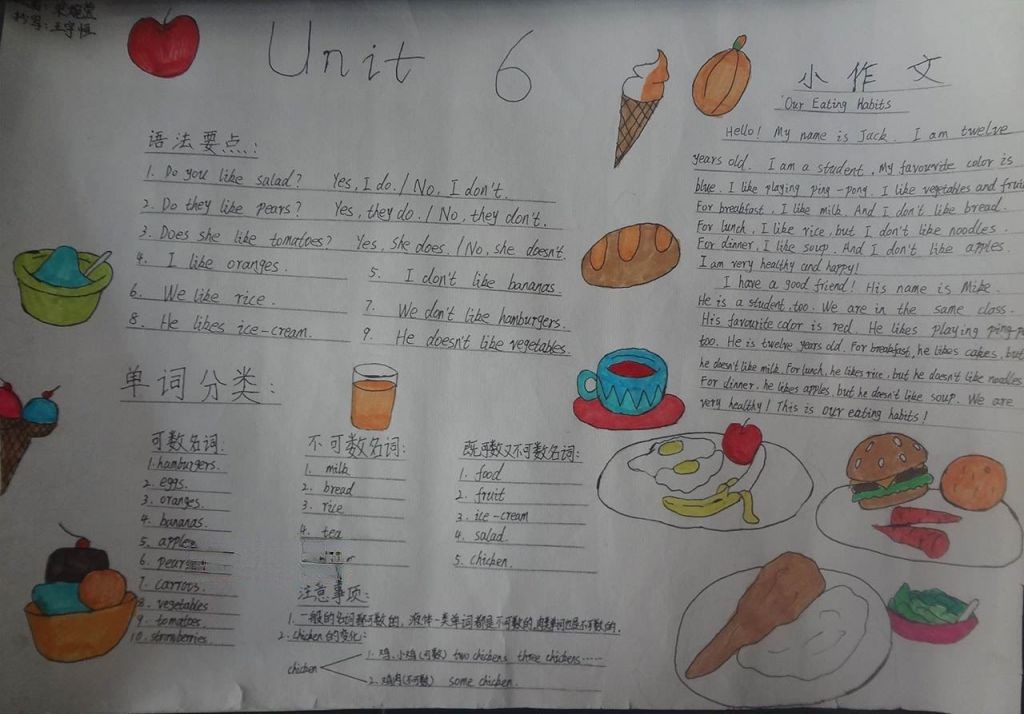 抄写:王宇恒
Unit 6
语法要点:
1. Do you like salad? Yes, I do. / No, I don't.
2. Do they like pears? Yes, they do. / No, they don't.
3. Does she like tomatoes? Yes, she does. / No, she doesn't.
4. I like oranges.
5. I don't like bananas.
6. We like rice.
7. We don't like hamburgers.
8. He likes ice-cream.
9. He doesn't like vegetables.
单词分类:
可数名词:
1. hamburgers.
2. eggs.
3. oranges.
4. bananas.
5. apple
6. pear
7. carrots.
8. vegetables
9. tomatoes.
10. strawberries.
不可数名词:
1. milk
2. bread
3. rice
4. tea
既可数又不可数名词:
1. food
2. fruit
3. ice-cream
4. salad.
5. chicken.
注意事项:
1. 一般的名词都可数的,液体一类单词都是不可数的,肉类单词也是不可数的.
2. chicken 的变化:
chicken
1. 鸡、小鸡(可数) two chickens three chickens……
2. 鸡肉(不可数) some chicken.
小作文
Our Eating Habits
Hello! My name is Jack. I am twelve
years old. I am a student. My favourite color is
blue. I like playing ping-pong. I like vegetables and
For breakfast, I like milk. And I don't like bread.
For lunch, I like rice, but I don't like noodles.
For dinner, I like soup. And I don't like apples.
I am very healthy and happy!
I have a good friend! His name is Mike.
He is a student, too. We are in the same class.
His favourite color is red. He likes playing
too. He is twelve years old. For breakfast, he likes cakes, but
he doesn't like milk. For lunch, he likes rice, but he doesn't like noodles
For dinner, he likes apples, but he doesn't like soup. We are
very healthy! This is our eating habits!